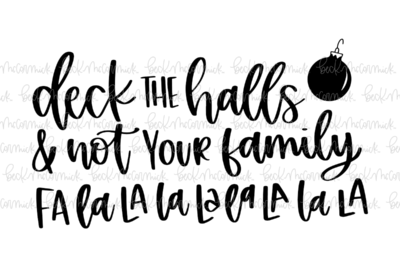 deck THE halls
& not YOUR family
FA la LA la La la LA la LA